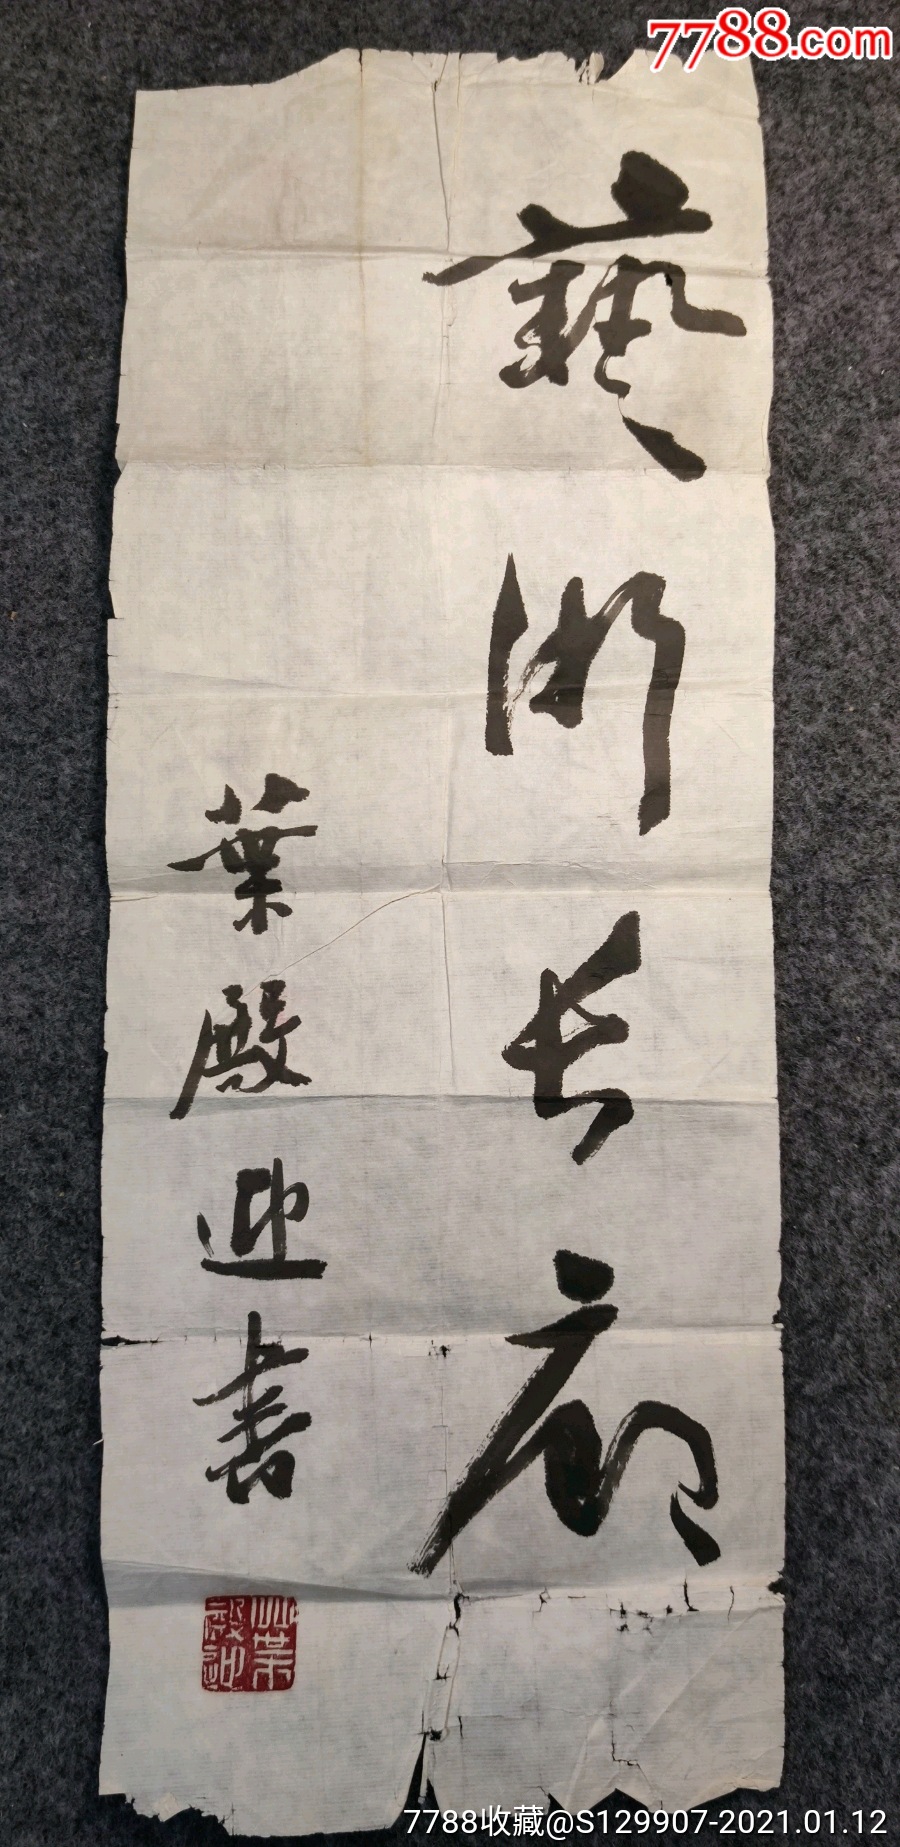 7788.com
藝術长廊
葉殿迎書
葉殿迎
7788收藏@S129907-2021.01.12